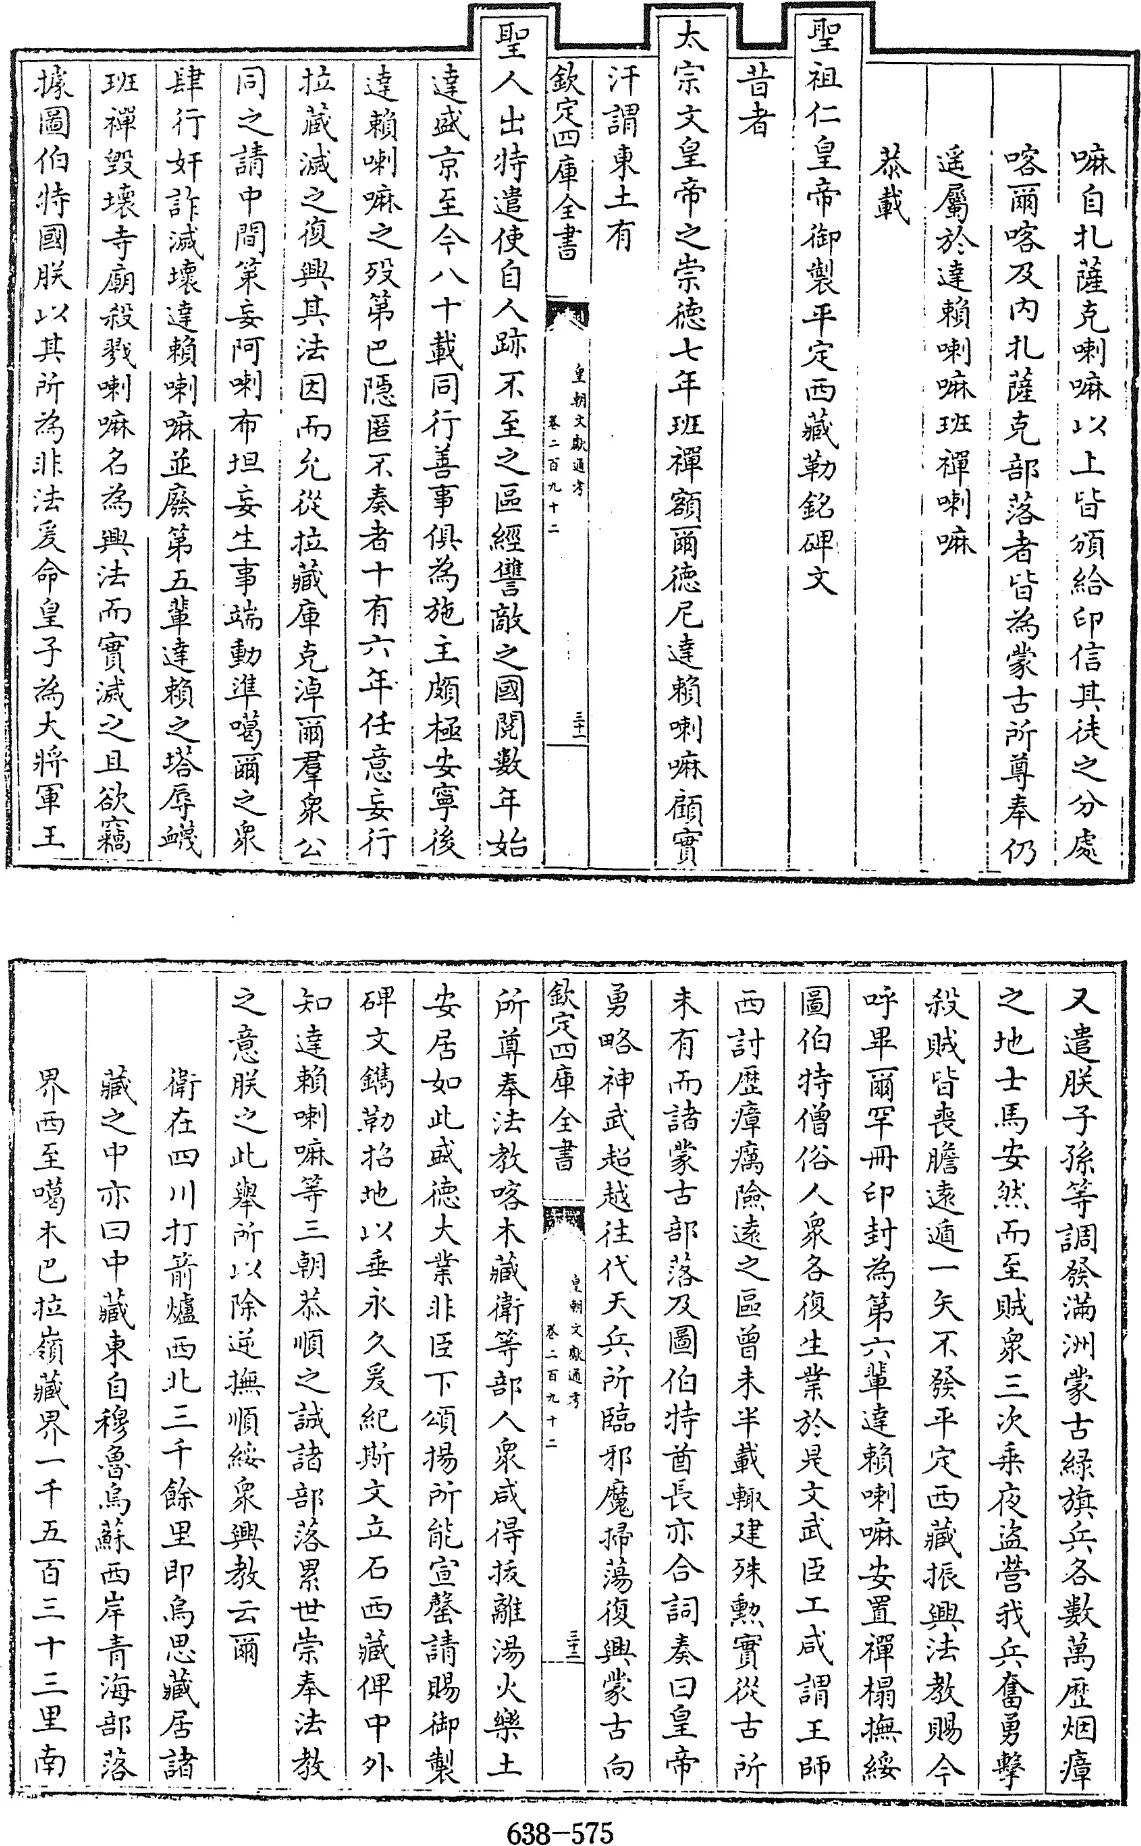 嘛自扎薩克喇嘛以上皆頒給印信其徒之分處
喀爾喀及內扎薩克部落者皆為蒙古所尊奉仍
遥屬於達賴喇嘛班禪喇嘛
恭載
聖祖仁皇帝御製平定西藏勒銘碑文
昔者
太宗文皇帝之崇德七年班禪額爾德尼達賴喇嘛顧實
汗謂東土有
欽定四庫全書
皇朝文獻通考
卷二百九十二
三十一
聖人出特遣使自人跡不至之區經讐敵之國閱數年始
達盛京至今八十載同行善事俱為施主頗極安寧後
達賴喇嘛之歿第巴隱匿不奏者十有六年任意妄行
拉藏滅之復興其法因而允從拉藏庫克淖爾羣衆公
同之請中間策妄阿喇布坦妄生事端動準噶爾之衆
肆行奸詐滅壞達賴喇嘛並廢第五輩達賴之塔辱衊
班禪毀壞寺廟殺戮喇嘛名為興法而實滅之且欲竊
據圖伯特國朕以其所為非法爰命皇子為大將軍王
又遣朕子孫等調發滿洲蒙古綠旗兵各數萬歷烟瘴
之地士馬安然而至賊衆三次乘夜盜營我兵奮勇擊
殺賊皆喪膽遠遁一矢不發平定西藏振興法教賜今
呼畢爾罕冊印封為第六輩達賴喇嘛安置禪榻撫綏
圖伯特僧俗人衆各復生業於是文武臣工咸謂王師
西討歷瘴癘險遠之區曾未半載輙建殊勲實從古所
未有而諸蒙古部落及圖伯特酋長亦合詞奏曰皇帝
勇略神武超越往代天兵所臨邪魔掃蕩復興蒙古向
欽定四庫全書
皇朝文獻通考
卷二百九十二
三十二
所尊奉法教喀木藏衛等部人衆咸得拔離湯火樂土
安居如此盛德大業非臣下頌揚所能宣罄請賜御製
碑文鐫勒招地以垂永久爰紀斯文立石西藏俾中外
知達賴喇嘛等三朝恭順之誠諸部落累世崇奉法教
之意朕之此舉所以除逆撫順綏衆興教云爾
衛在四川打箭爐西北三千餘里即烏思藏居諸
藏之中亦曰中藏東自穆魯烏蘇西岸青海部落
界西至噶木巴拉嶺藏界一千五百三十三里南
638-575